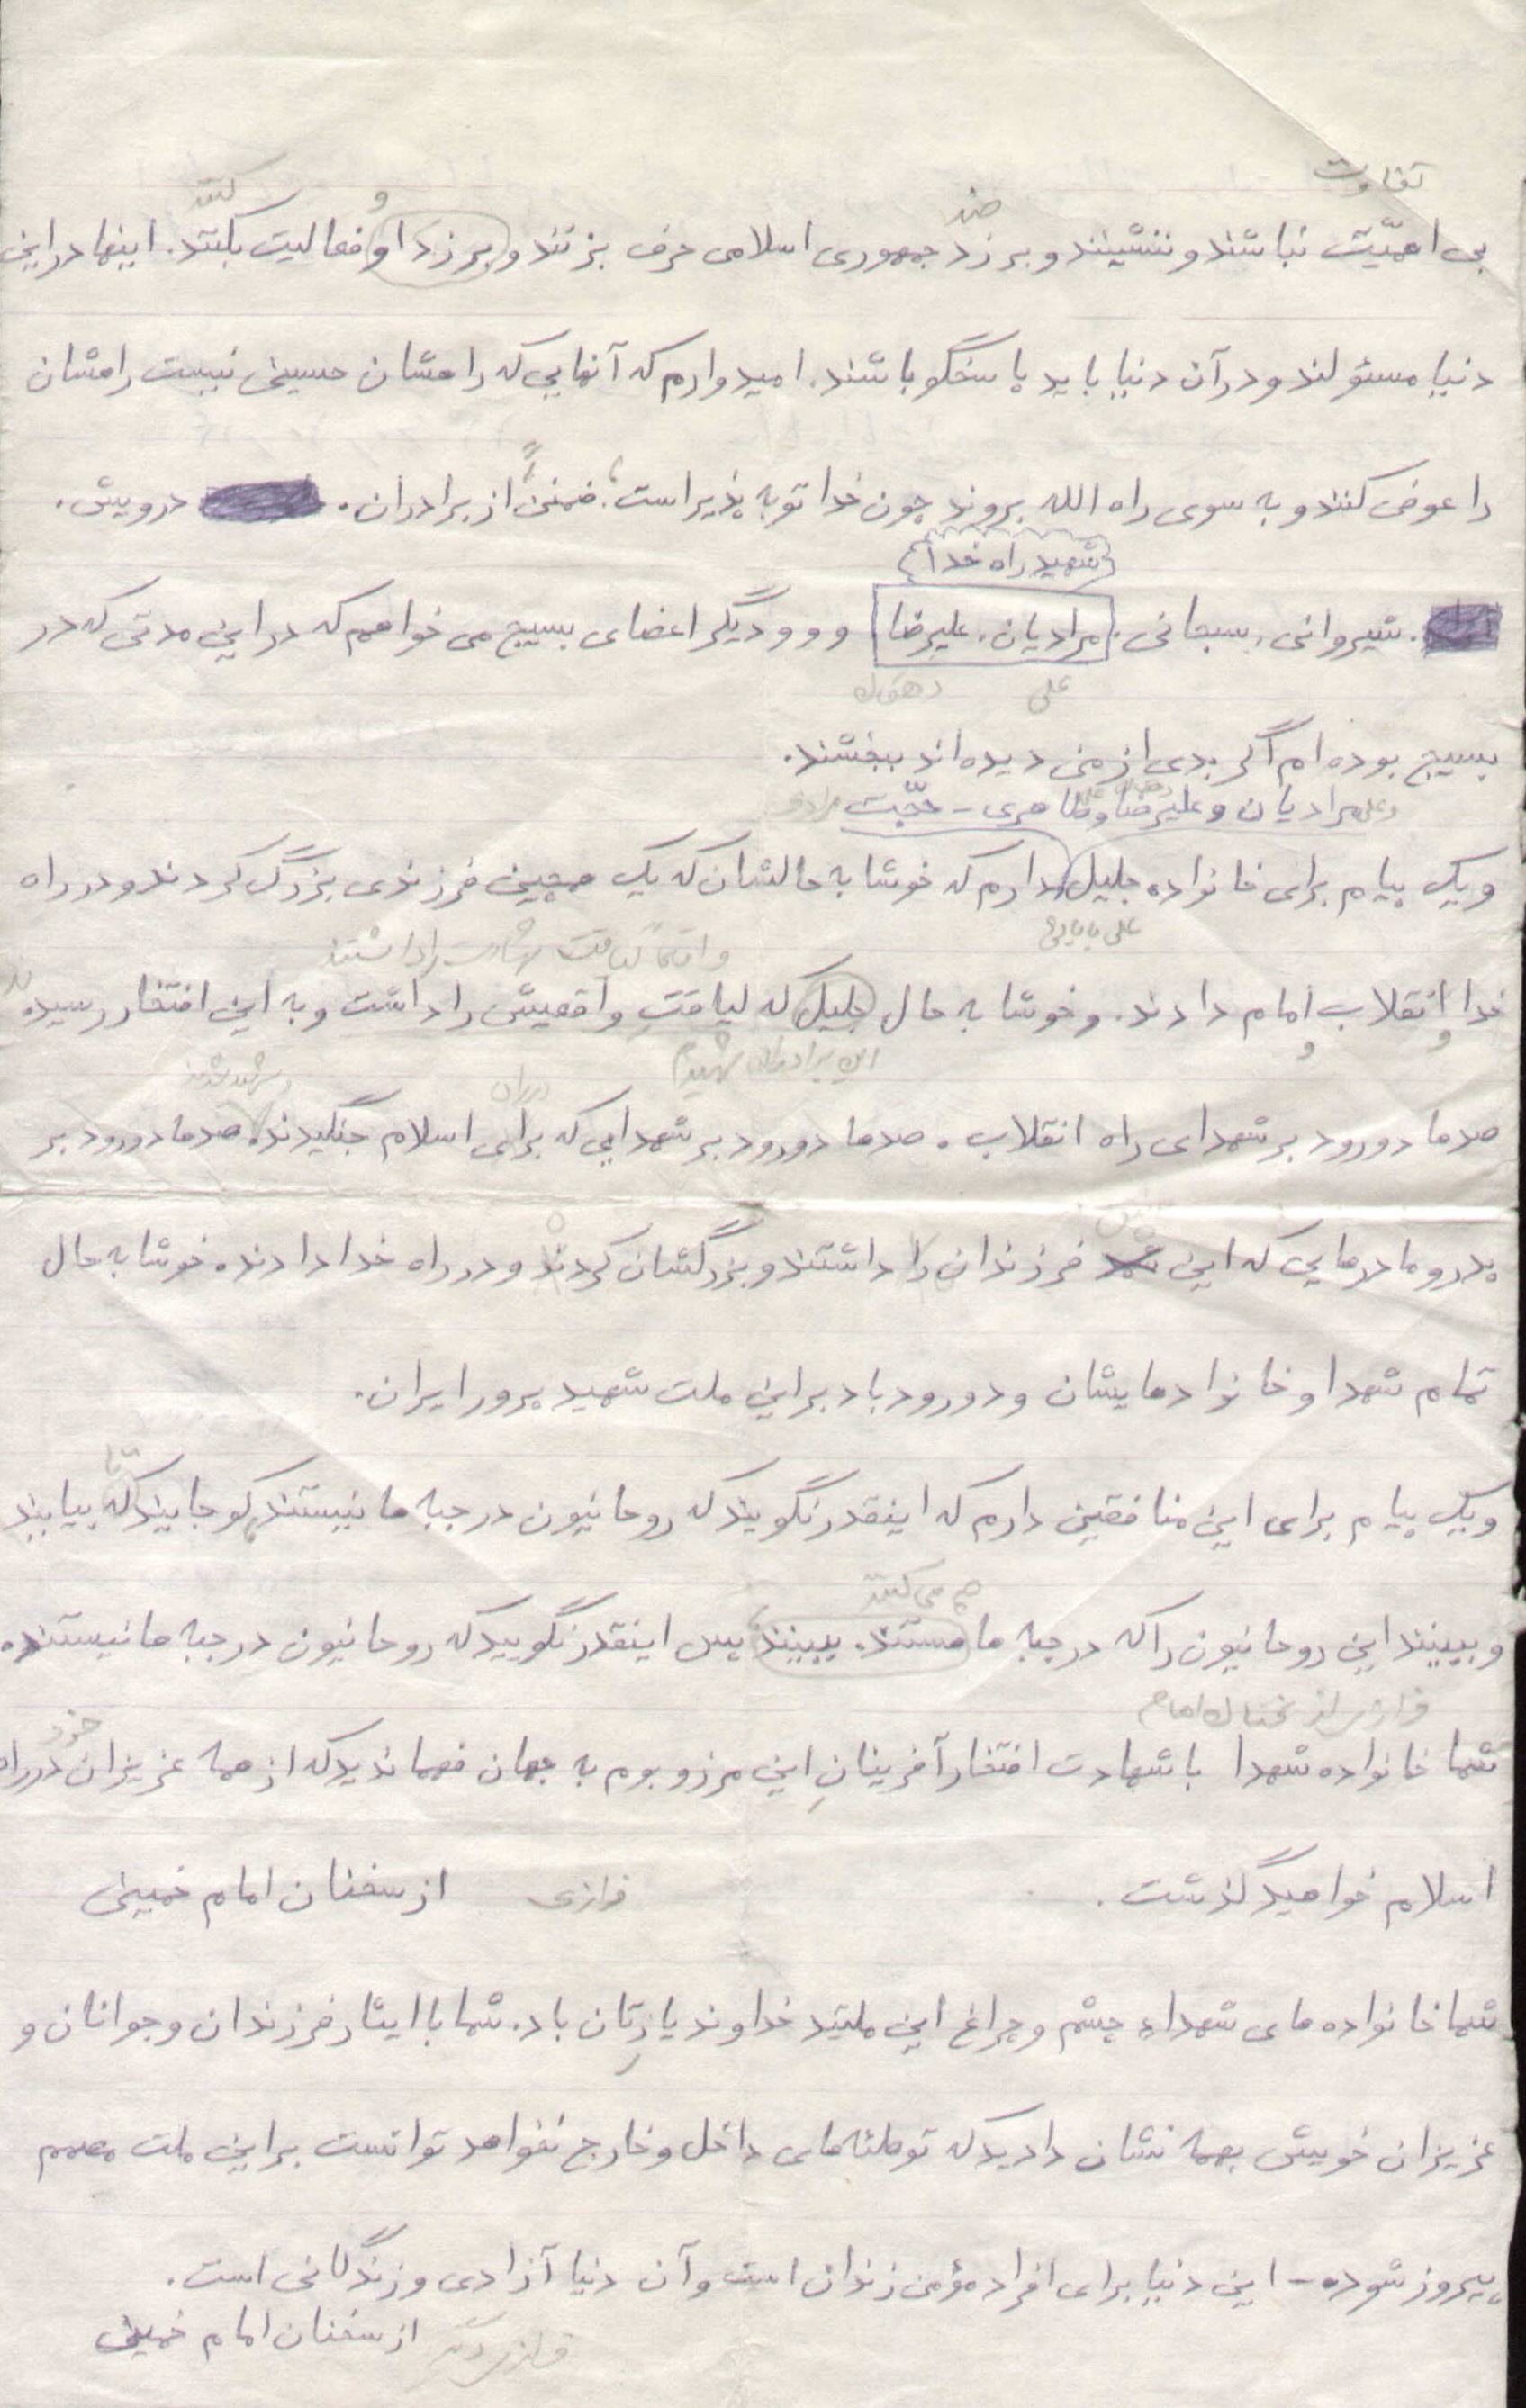 تفاوت
ضد
و
کنند
بی اهمیّت نباشند و ننشینند و بر زد جمهوری اسلامی حرف بزنند و بر زد او فعالیت بکنند. اینها در این
دنیا مسئولند و در آن دنیا باید پاسخگو باشند. امیدوارم که آنهایی که راهشان حسینی نیست راهشان
را عوض کنند و به سوی راه الله بروند چون خدا توبه پذیر است. ضمنن از برادران. درویش.
شهید راه خدا
. شیروانی. سبحانی. مرادیان. علیرضا و و و دیگر اعضای بسیج می خواهم که در این مدتی که در
علی دهقان
بسیج بوده ام اگر بدی از من دیده اند ببخشند.
مرادیان و علیرضا و طاهری - حجّت
و یک پیام برای خانواده جلیل دارم که خوشا به حالشان که یک همچین فرزندی بزرگ کردند و در راه
علی بابایی
واقعاً لیاقت شهادت را داشتند
خدا انقلاب امام دادند. و خوشا به حال جلیل که لیاقت واقعیش را داشت و به این افتخار رسید.
و و
این برادران شهیدم
در راه
و شهید شدند
صدها دورود بر شهدای راه انقلاب. صدها دورود بر شهدایی که برای اسلام جنگیدند. صدها دورود بر
پدر و مادرهایی که این فرزندان را داشتند و بزرگشان کردند و در راه خدا دادند. خوشا به حال
تمام شهدا و خانوادهایشان و دورود باد بر این ملت شهید پرور ایران.
تا
و یک پیام برای این منافقین دارم که اینقدر نگویند که روحانیون در جبهه ها نیستند کوجایند که بیایند
چه می کنند
و ببینند این روحانیون را که در جبهه ها هستند. ببینند پس اینقدر نگویید که روحانیون در جبهه ها نیستند.
فرازی از سخنان امام
خود
شما خانواده شهدا با شهادت افتخار آفرینانِ این مرز و بوم به جهان فهماندید که از همه عزیزان در راه
اسلام خواهید گذشت. فرازی از سخنان امام خمینی
شما خانواده های شهداء چشم و چراغ این ملتید خداوند یارتان باد. شما با ایثار فرزندان و جوانان و
عزیزان خویش بهمه نشان دادید که توطئه های داخل و خارج نخواهد توانست بر این ملت مصمم
پیروز شود. - این دنیا برای افراد مؤمن زندان است و آن دنیا آزادی و زندگانی است.
از سخنان امام خمینی